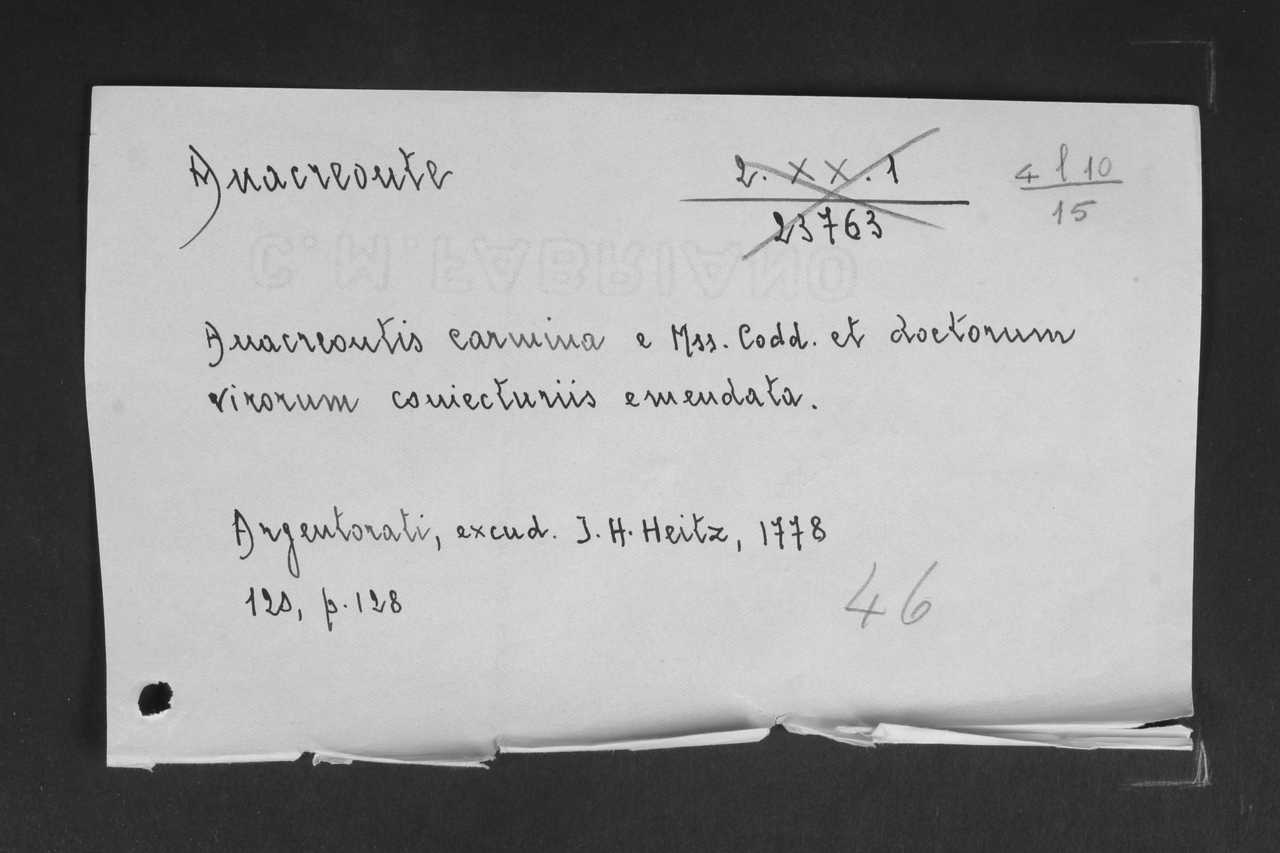 Anacreonte
2. XX. 1
23763
4 l 10
15
C. M. FABRIANO
Anacreontis carmina e Mss. Codd. et doctorum
virorum coniecturiis emendata.
Argentorati, excud. J. H. Heitz, 1778
12º, p. 128
46